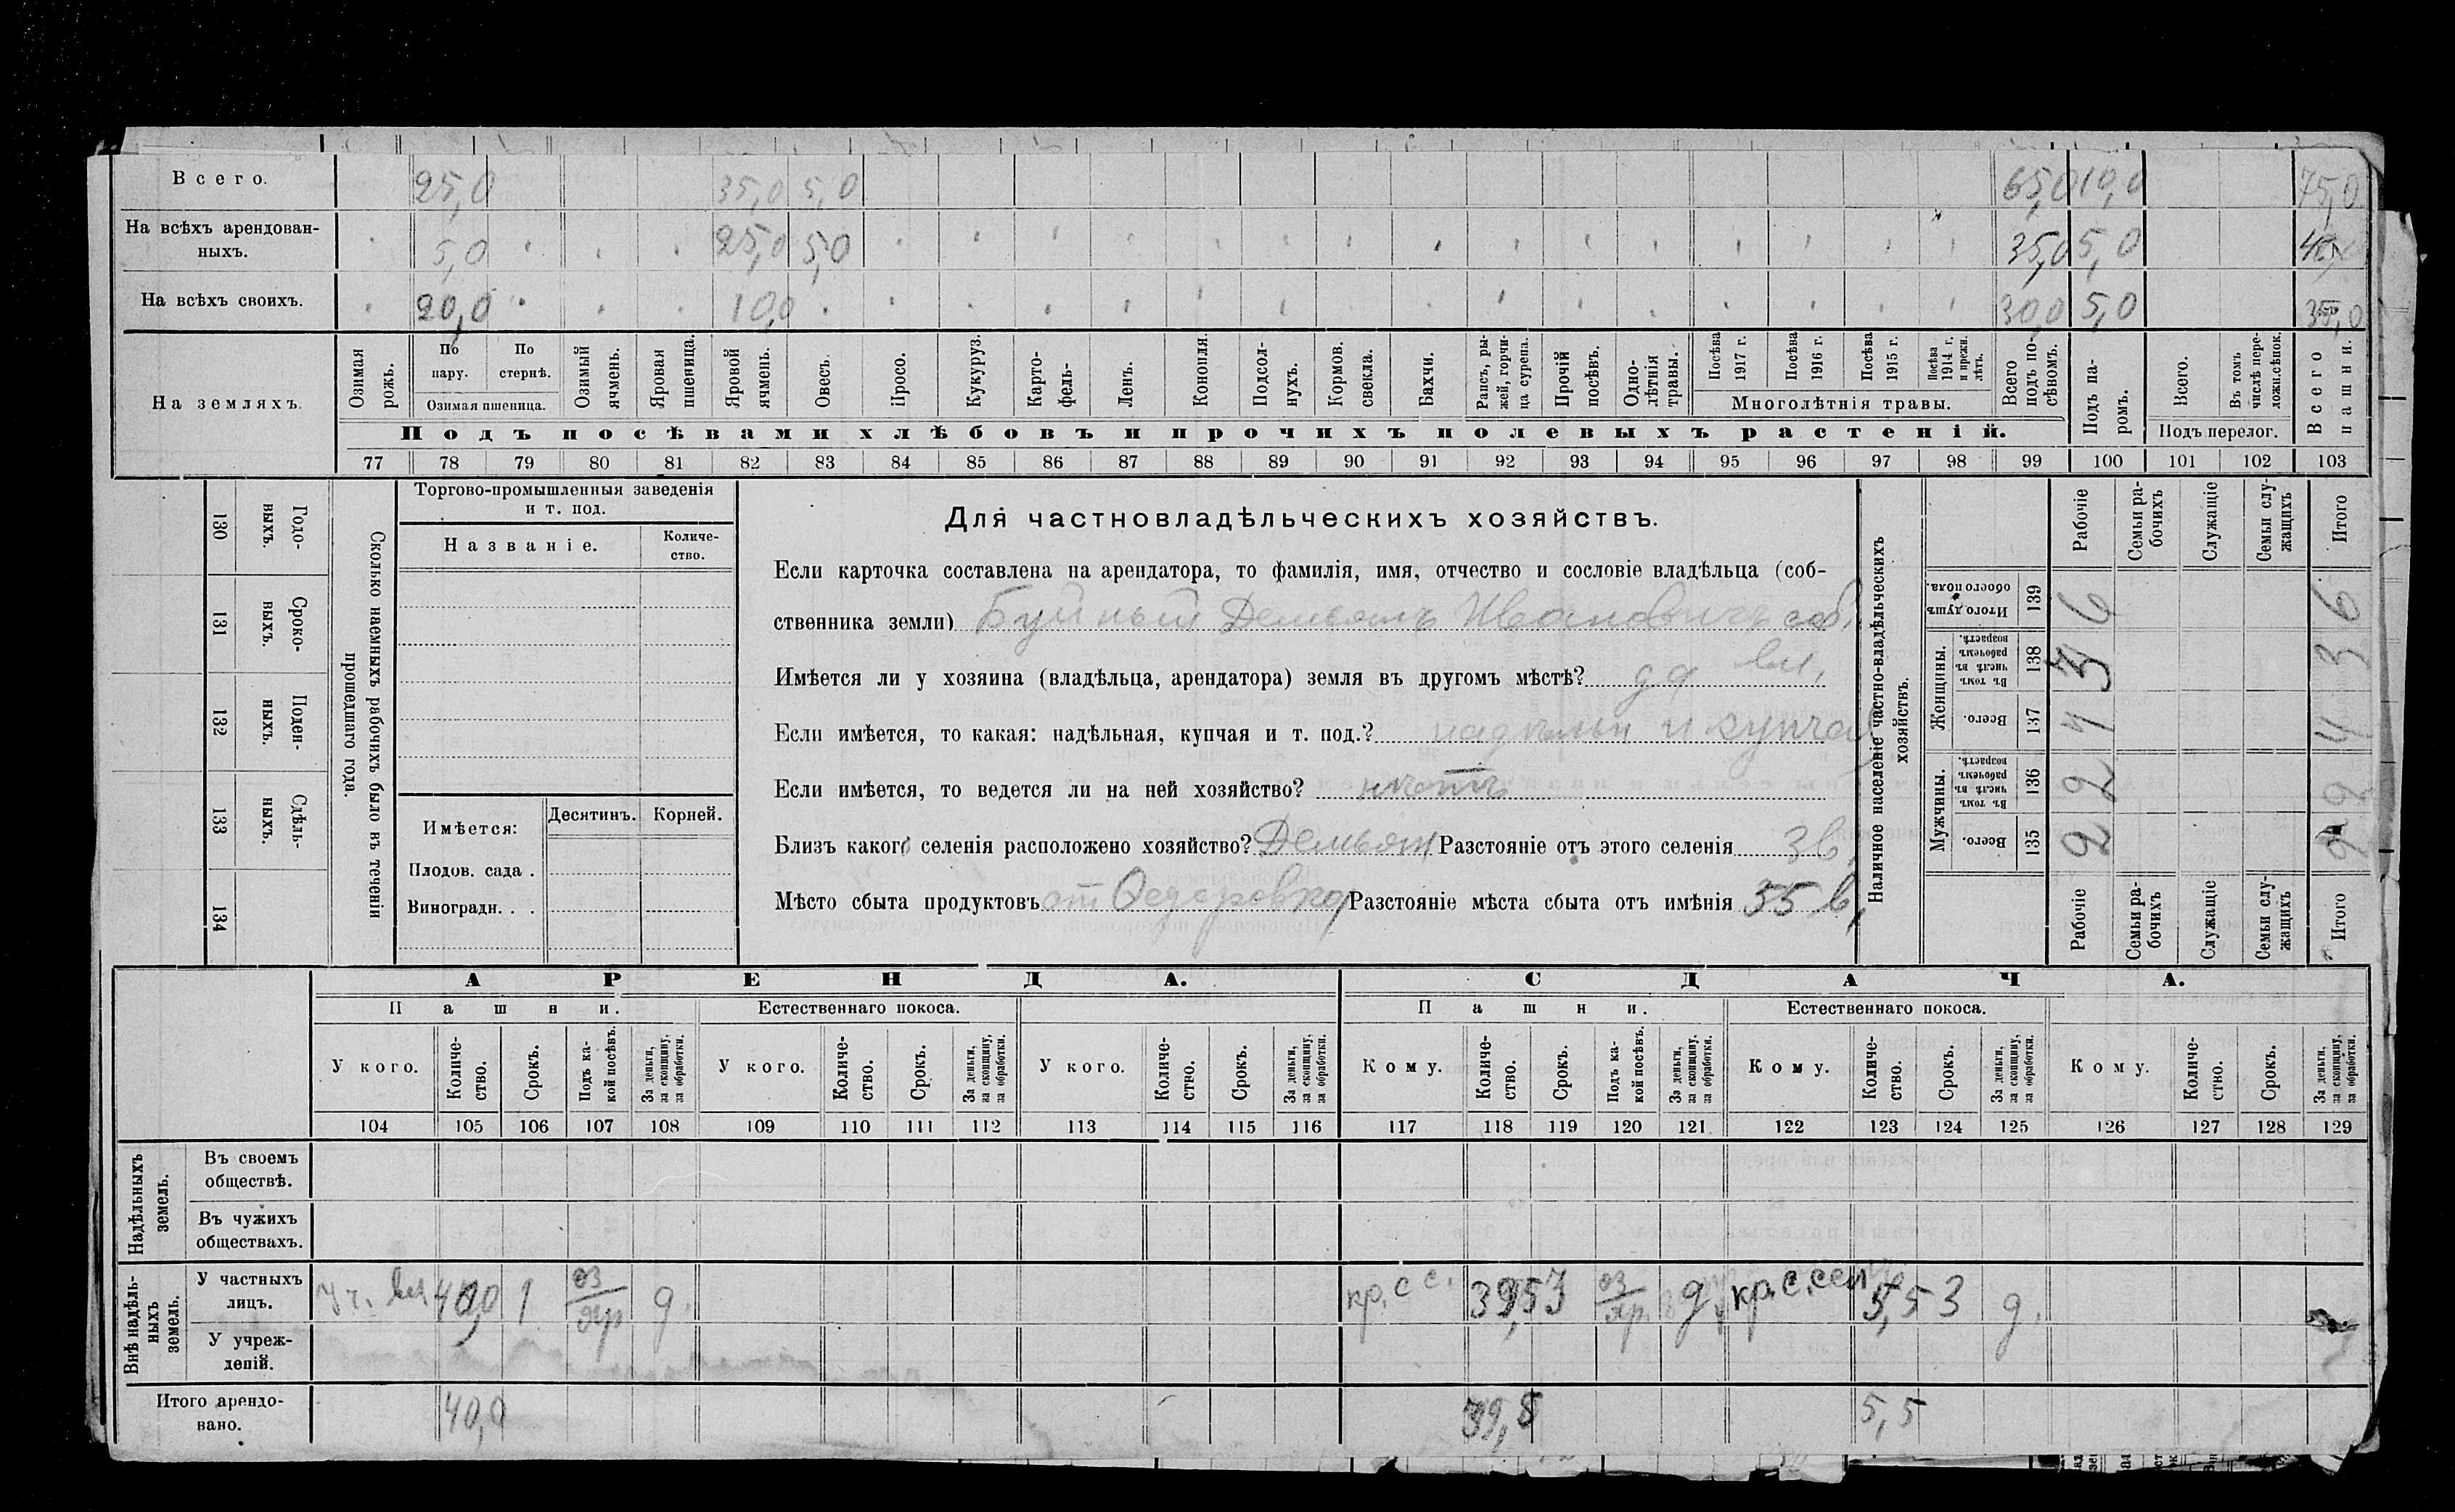 Всего. 25,0 35,0 5,0 65,0 10,0 75,0
На всѣхъ арендован-
ныхъ. 5,0 25,0 5,0 35,0 5,0
На всѣхъ своихъ. 20,0 10,0 30,0 5,0 35,0
На земляхъ.
Озимая рожь.
По пару.
По стернѣ.
Озимая пшеница.
Озимый ячмень.
Яровая пшеница.
Яровой ячмень.
Овесъ.
Просо.
Кукуруз.
Карто-
фель.
Ленъ.
Конопля.
Подсол-
нухъ.
Кормов. свекла.
Бахчи.
Рапсъ, ры-
жей, горчи-
ца сурепа.
Прочій посѣвъ.
Одно-
лѣтнія травы.
Посѣва 1917 г.
Посѣва 1916 г.
Посѣва 1915 г.
Посѣва 1914 г. и прежн. лѣтъ.
Многолѣтнія травы.
Всего подъ по-
сѣвомъ.
Подъ па-
ромъ.
Всего.
Въ томъ числѣ пере-
ложн. сѣнок.
Подъ перелог.
Всего пашни.
Подъ посѣвами хлѣбовъ и прочихъ полевыхъ растеній.
77 78 79 80 81 82 83 84 85 86 87 88 89 90 91 92 93 94 95 96 97 98 99 100 101 102 103
130 Годо-
выхъ.
131 Сроко-
выхъ.
132 Поден-
ныхъ.
133 Сдѣль-
ныхъ.
134
Сколько наемныхъ рабочихъ было въ теченіи
прошедшаго года.
Торгово-промышленныя заведенія
и т. под.
Названіе.
Количе-
ство.
Имѣется:
Десятинъ.
Корней.
Плодов. сада .
Виноградн. . .
Для частновладѣльческихъ хозяйствъ.
Если карточка составлена на арендатора, то фамилія, имя, отчество и сословіе владѣльца (соб-
ственника земли) Буйный Демьянъ Ивановичъ соб.
вл.
Имѣется ли у хозяина (владѣльца, арендатора) земля въ другомъ мѣстѣ? да
Если имѣется, то какая: надѣльная, купчая и т. под.? надѣльн и купчая
Если имѣется, то ведется ли на ней хозяйство? нѣтъ
Близъ какого селенія расположено хозяйство? Демьян Разстояніе отъ этого селенія 3 в.
Мѣсто сбыта продуктовъ ст Федоровка Разстояніе мѣста сбыта отъ имѣнія 35 в.
Наличное населеніе частно-владѣльческихъ
хозяйствъ.
Рабочіе
Семьи ра-
бочихъ
Служащіе
Семьи слу-
жащихъ
Итого
Итого душъ обоего пола. 139 6 6
Женщины.
Въ томъ числѣ въ рабочемъ возрастѣ. 138 3 3
Всего. 137 4 4
Мужчины.
Въ томъ числѣ въ рабочемъ возрастѣ. 136 2 2
Всего. 135 2 2
Рабочіе
Семьи ра-
бочихъ
Служащіе
Семьи слу-
жащихъ
Итого
АРЕНДА.
СДАЧА.
Пашни.
Естественнаго покоса.
Пашни.
Естественнаго покоса.
У кого.
Количе-
ство.
Срокъ.
Подъ ка-
кой посѣвъ.
За деньги, за скопщину, за обработки.
У кого.
Количе-
ство.
Срокъ.
За деньги, за скопщину, за обработки.
У кого.
Количе-
ство.
Срокъ.
За деньги, за скопщину, за обработки.
Кому.
Количе-
ство.
Срокъ.
Подъ ка-
кой посѣвъ.
За деньги, за скопщину, за обработки.
Кому.
Количе-
ство.
Срокъ.
За деньги, за скопщину, за обработки.
Кому.
Количе-
ство.
Срокъ.
За деньги, за скопщину, за обработки.
104 105 106 107 108 109 110 111 112 113 114 115 116 117 118 119 120 121 122 123 124 125 126 127 128 129
Надѣльныхъ земель.
Въ своемъ
обществѣ.
Въ чужихъ
обществахъ.
Внѣ надѣль-
ныхъ земель.
У частныхъ
лицъ. 40,0 1 оз/яр д. кр. с с. 39,5 3 оз/яр д кр. с. сел 5,5 3 д.
У учреж-
деній.
Итого арендо-
вано. 40,0 39,5 5,5